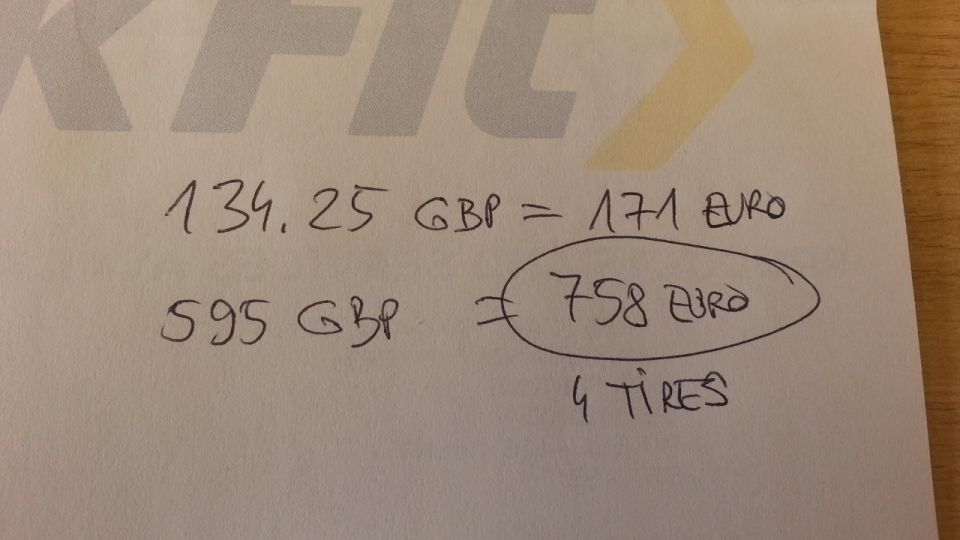 KFit
134.25 GBP = 171 EURO
595 GBP = 758 EURO
4 TIRES